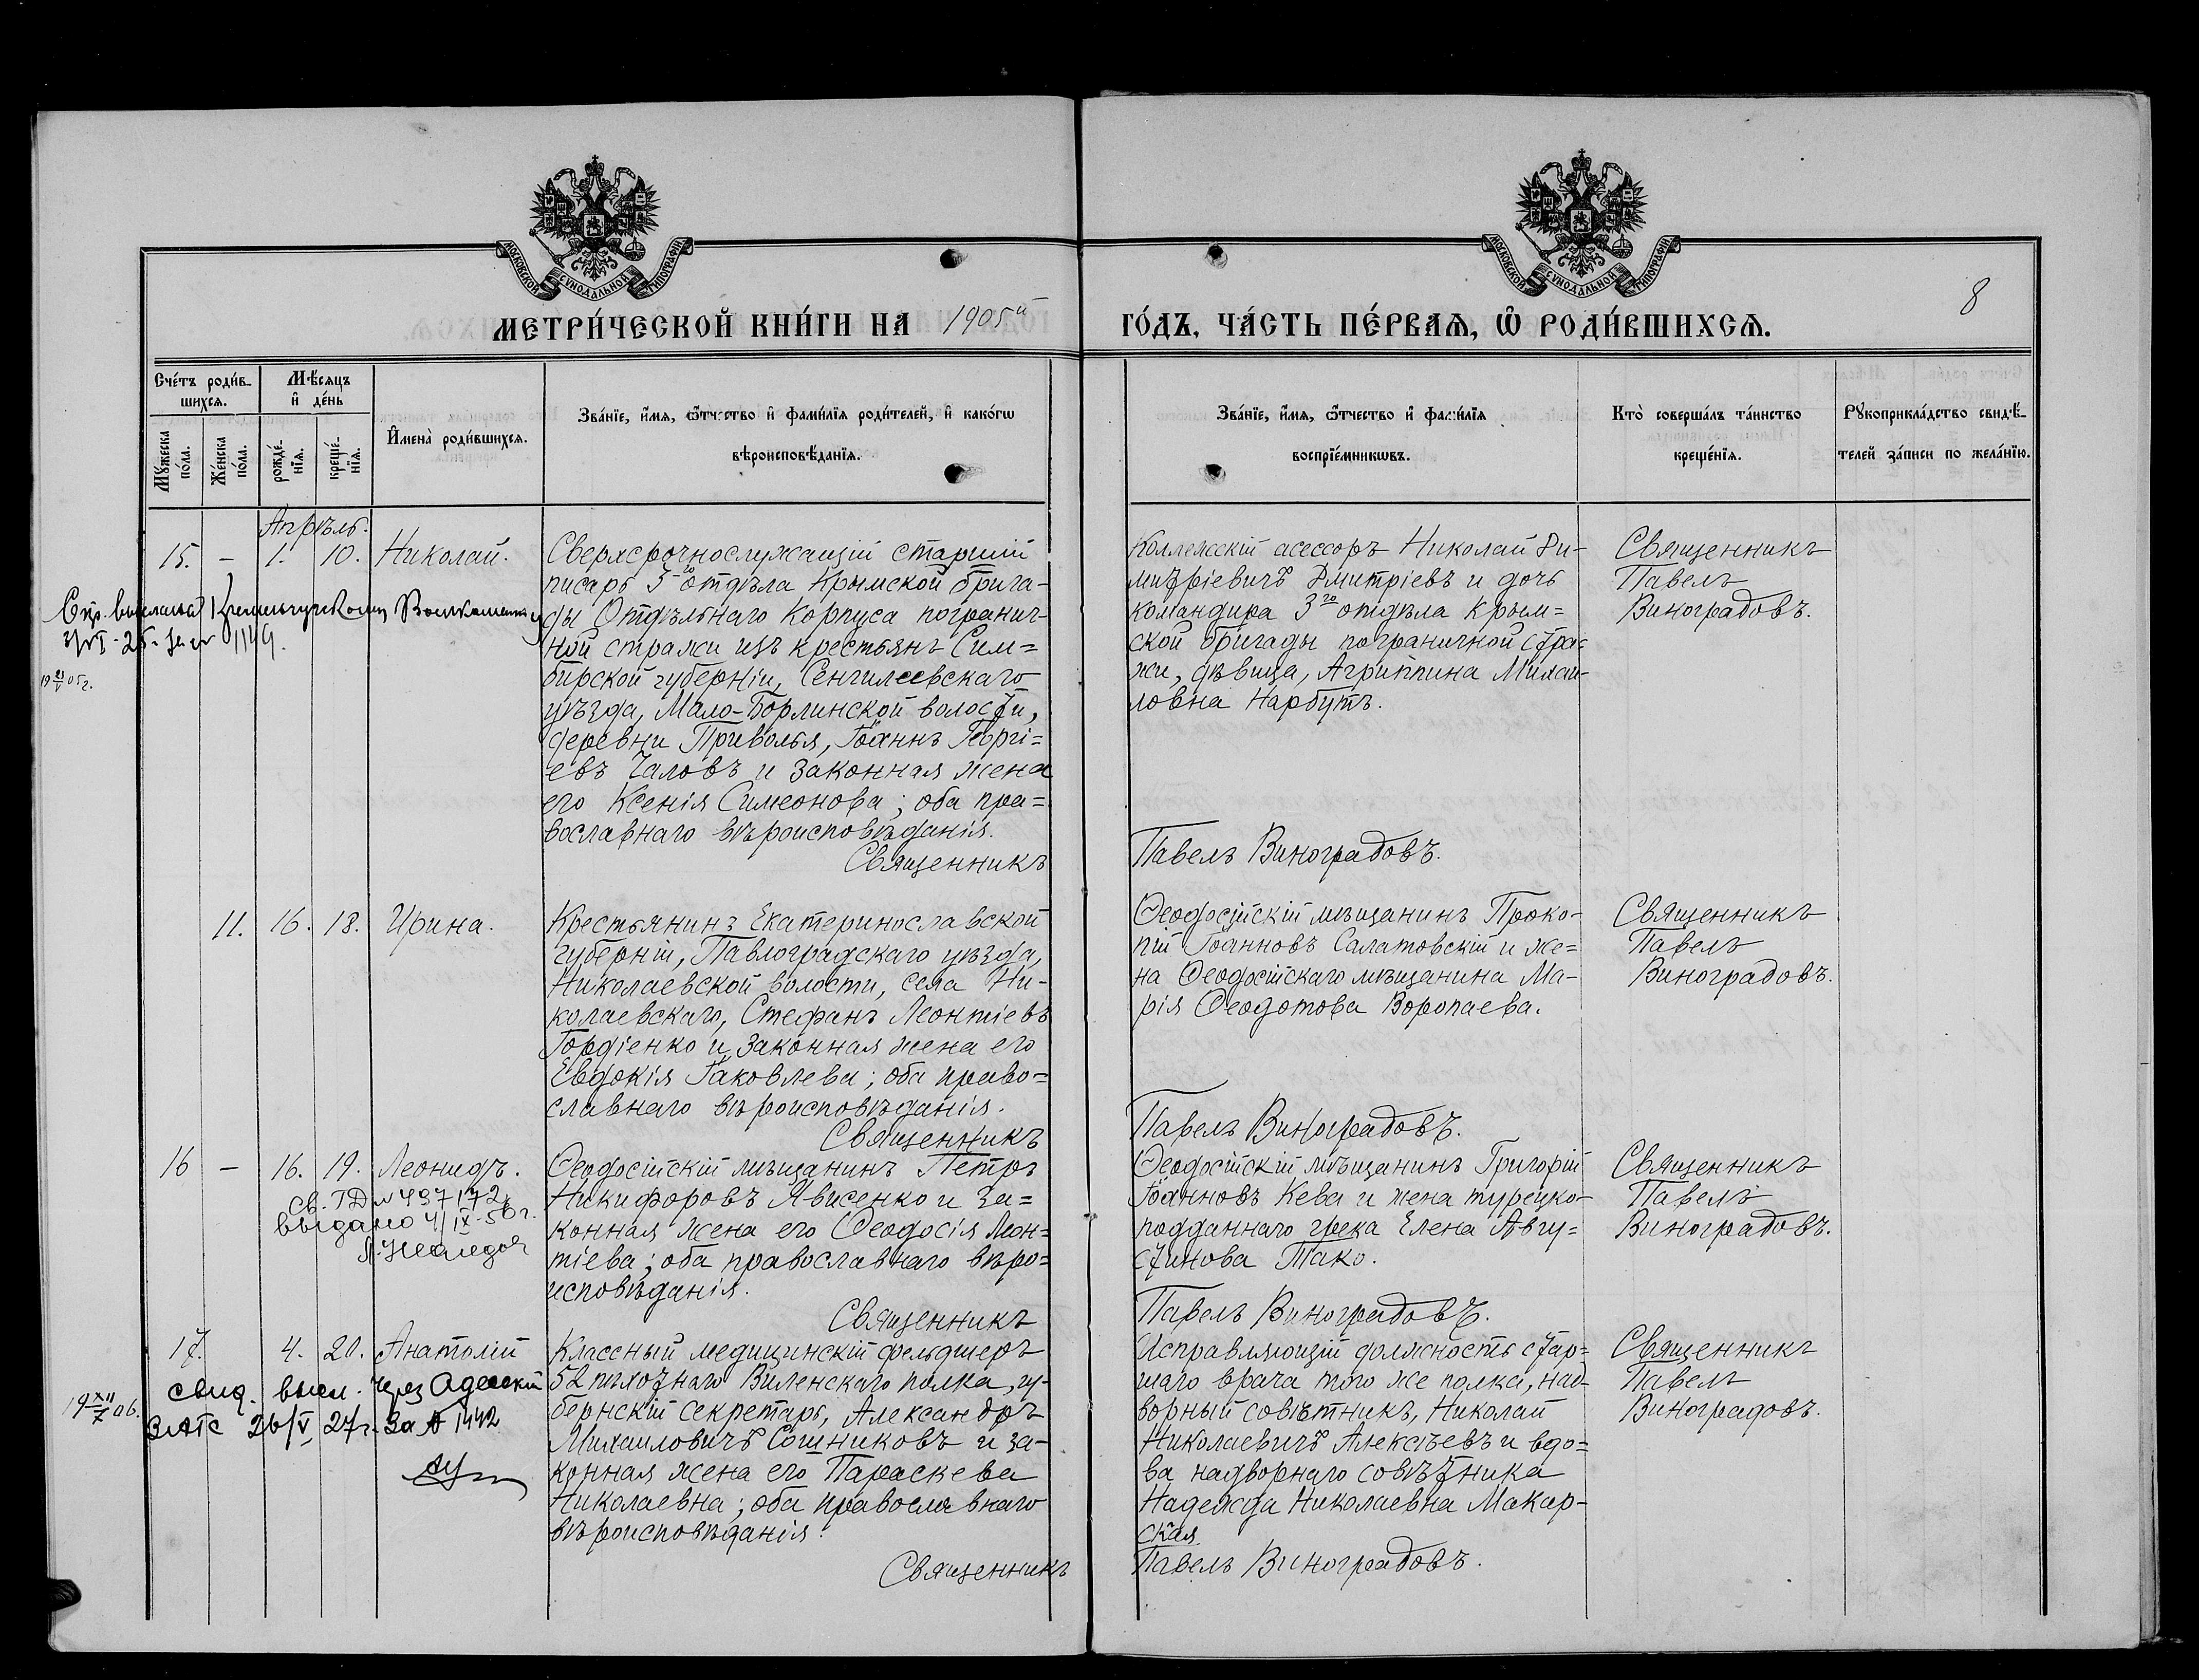 МОСКОВСКОЙ СѴНОДАЛЬНОЙ ТИПОГРАФІИ
МОСКОВСКОЙ СѴНОДАЛЬНОЙ ТИПОГРАФІИ
8
МЕТРИ́ЧЕСКОЙ КНИ́ГИ НА 1905й ГО́ДЪ, ЧА́СТЬ ПЕ́РВАѦ, Ѽ РОДИ́ВШИХСѦ.
Сче́тъ роди́вшихсѧ.
Мѣ́сѧцъ и҆ де́нь
И҆мена̀ роди́вшихсѧ.
Зва́нїе, и҆́мѧ, ѻ҆́тчество и҆ фами́лїѧ роди́телей, и҆ како́гѡ
вѣроисповѣ́данїѧ.
Зва́нїе, и҆́мѧ, ѻ҆́тчество и҆ фами́лїѧ
воспрїе́мникѡвъ.
Кто̀ соверша́лъ та́инство
креще́нїѧ.
Рꙋкоприкла́дство свидѣ́-
телей за́писи по жела́нїю.
Мꙋ́жеска по́ла.
Же́нска по́ла.
рожде́-нїѧ.
креще́-нїѧ.
Апрѣль.
15. – 1. 10. Николай.
Сверхсрочнослужащій старшій
писарь 3го отдѣла Крымской брига-
ды Отдѣльнаго Корпуса погранич-
ной стражи изъ крестьянъ Сим=
бирской губерніи, Сенгилеевскаго
уѣзда, Мало-Борлинской волости,
деревни Приволья, Іоаннъ Георгі=
евъ Чаловъ и законная жена
его Ксенія Симеонова; оба пра=
вославнаго вѣроисповѣданія.
Священникъ
Коллежскій асессоръ Николай Ди-
митріевичъ Дмитріевъ и дочь
командира 3го отдѣла Крым=
ской бригады пограничной стра=
жи, дѣвица, Агриппина Михаи-
ловна Нарбутъ.
Павелъ Виноградовъ.
Священникъ
Павелъ
Виноградовъ.
1149.
11. 16. 18. Ирина.
Крестьянинъ Екатеринославской
губерніи, Павлоградскаго уѣзда,
Николаевской волости, села Ни-
колаевскаго, Стефанъ Леонтіевъ
Гордіенко и законная жена его
Евдокія Іаковлева; оба право=
славнаго вѣроисповѣданія.
Священникъ
Ѳеодосійскій мѣщанинъ Проко-
пій Іоанновъ Салатовскій и же=
на Ѳеодосійскаго мѣщанина Ма-
рія Ѳеодотова Воропаева.
Павелъ Виноградовъ.
Священникъ
Павелъ
Виноградовъ.
16 – 16. 19. Леонидъ.
Св. ГД № 437172
выдано 4/IX-56г.
Ѳеодосійскій мѣщанинъ Петръ
Никифоровъ Явисенко и за-
конная жена его Ѳеодосія Леон=
тіева; оба православнаго вѣро=
исповѣданія.
Священникъ
Ѳеодосійскій мѣщанинъ Григорій
Іоанновъ Кева и жена турецко-
подданнаго грека Елена Авгу=
стинова Тако.
Павелъ Виноградовъ.
Священникъ
Павелъ
Виноградовъ.
17. 4. 20. Анатолій
свид. высл. через Одесский
ЗАГС 26/V 27г. За № 1442
Классный медицинскій фельдшеръ
52 пѣхотнаго Виленскаго полка, гу-
бернскій секретарь, Александръ
Михаиловичъ Сошниковъ и за-
конная жена его Параскева
Николаевна; оба православнаго
вѣроисповѣданія.
Священникъ
Исправляющій должность стар=
шаго врача того же полка, над-
ворный совѣтникъ, Николай
Николаевичъ Алексѣевъ и вдо=
ва надворнаго совѣтника
Надежда Николаевна Макар-
ская
Павелъ Виноградовъ.
Священникъ
Павелъ
Виноградовъ.